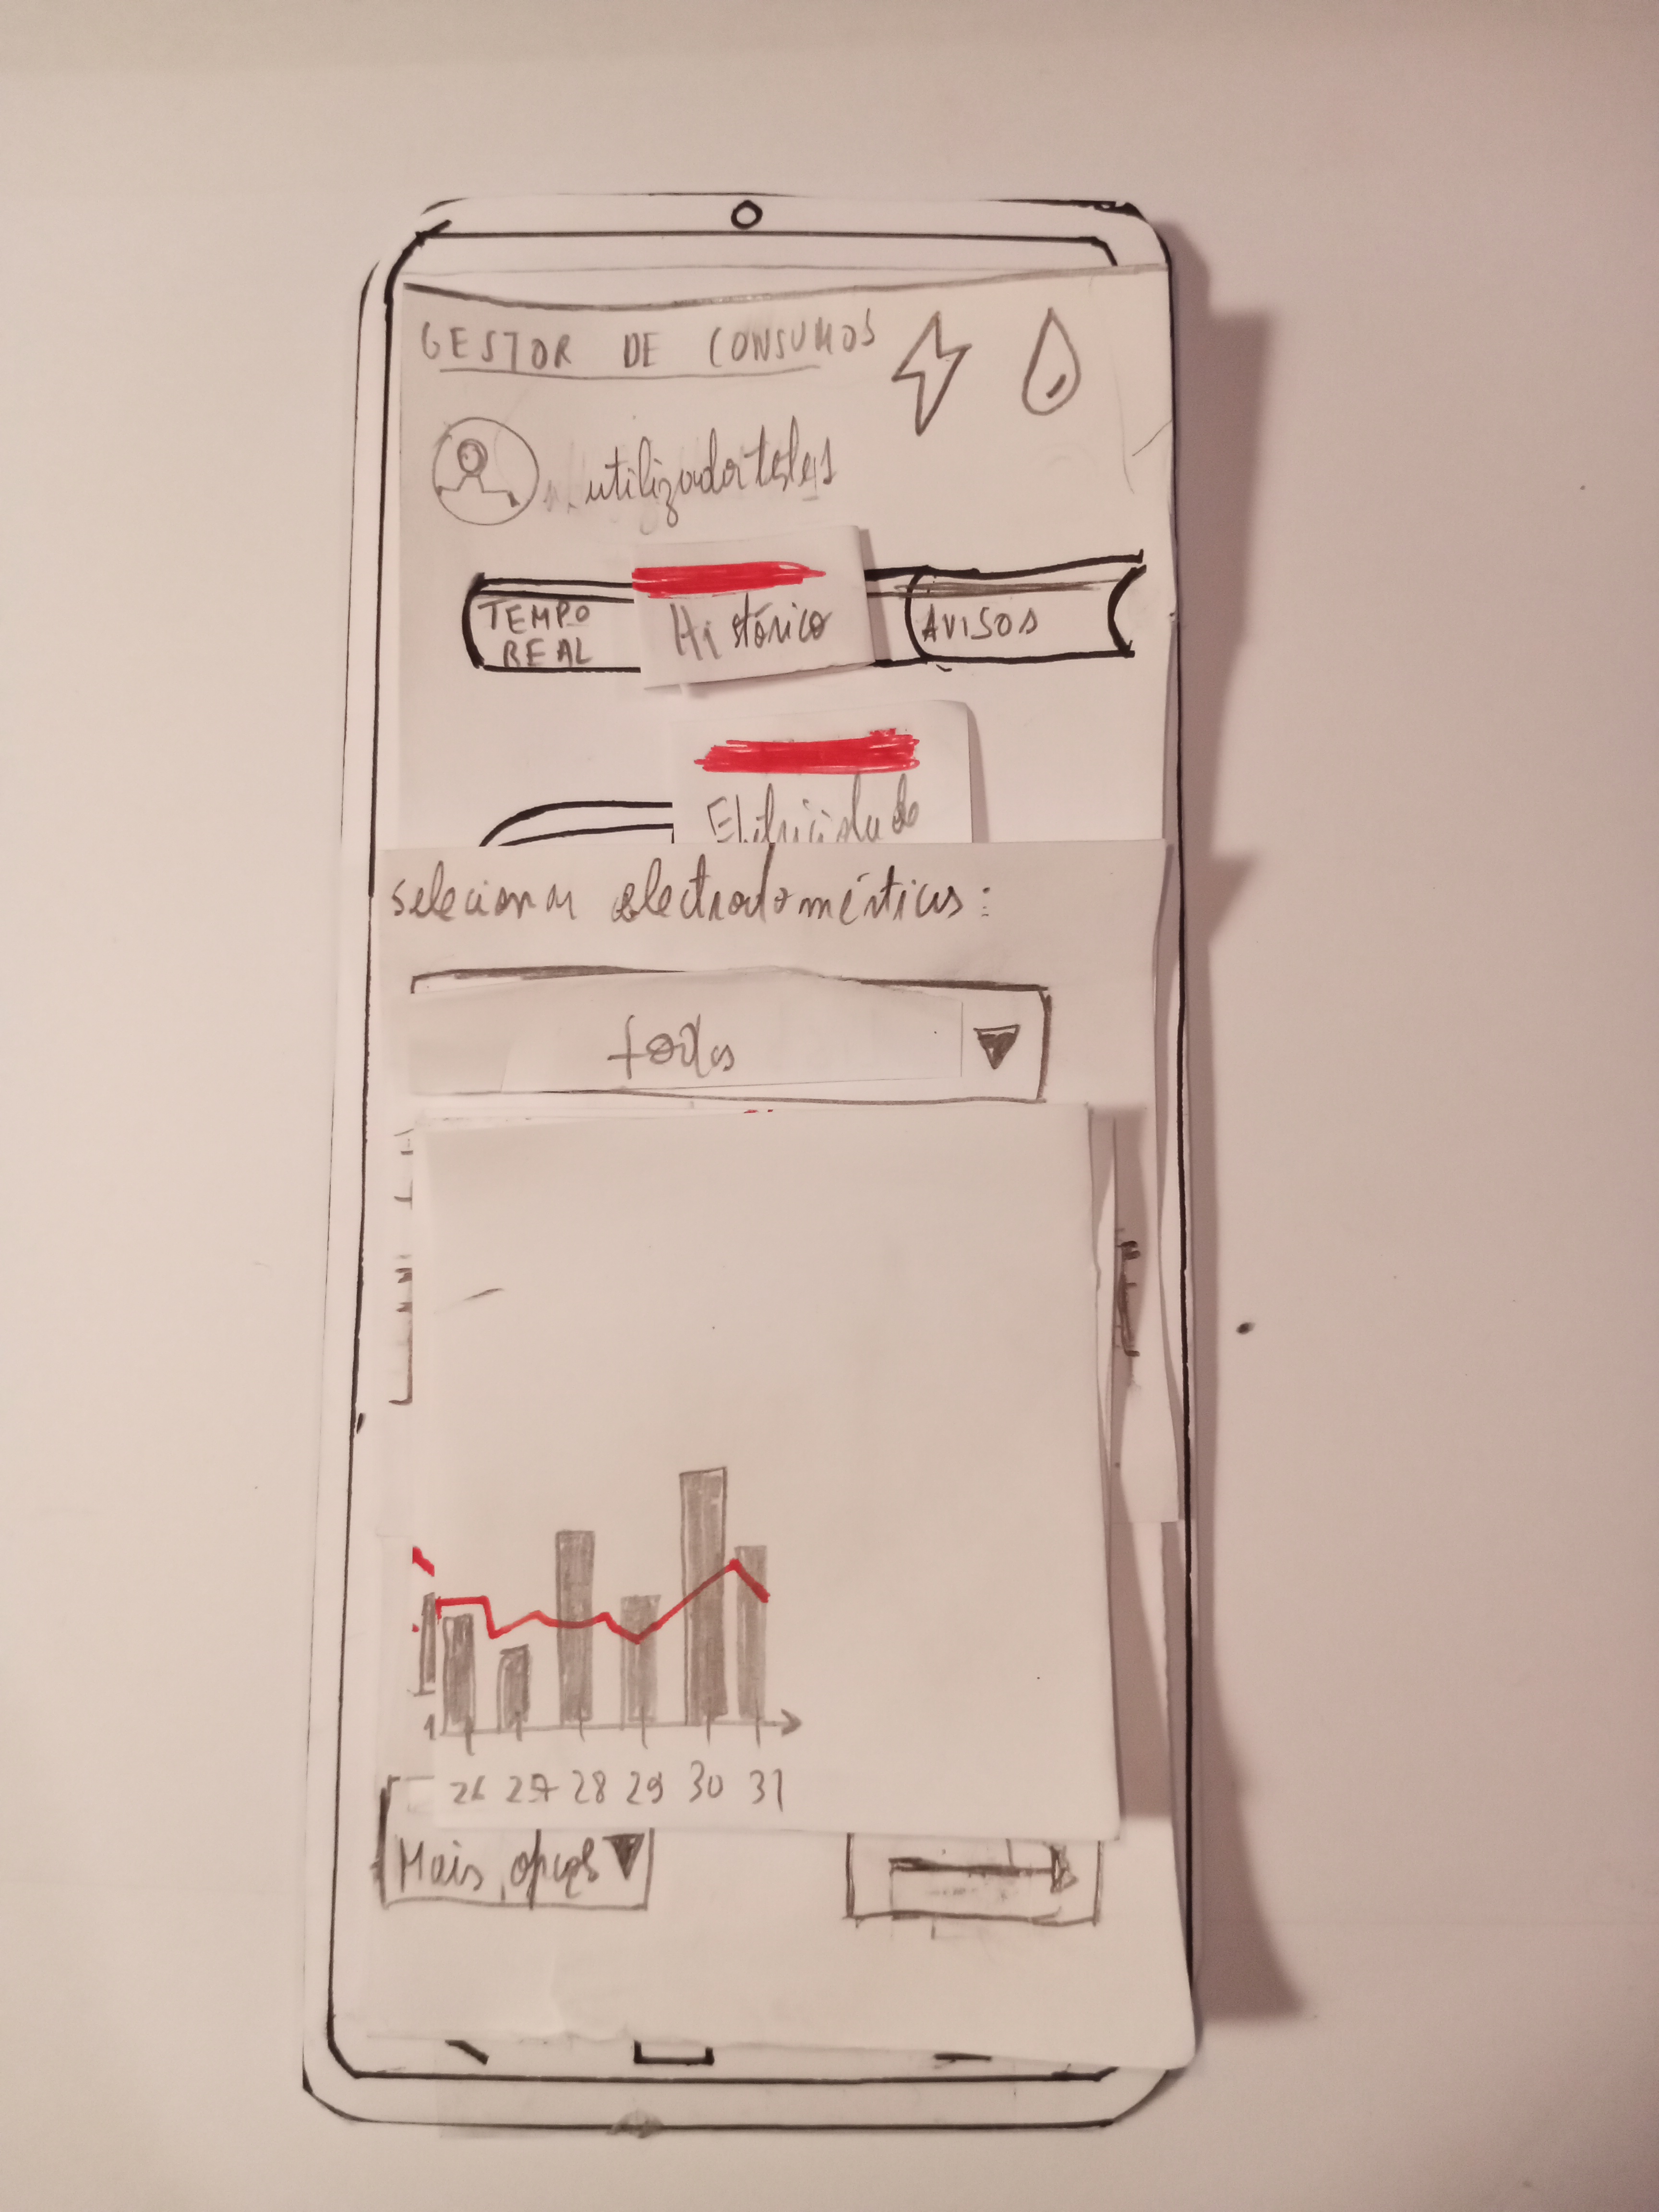 GESTOR DE CONSUMOS
utilizadorteles1
TEMPO REAL
Histórico
AVISOS
Eletricidade
selecionar electrodomésticos:
todos
1
26 27 28 29 30 31
Mais opções